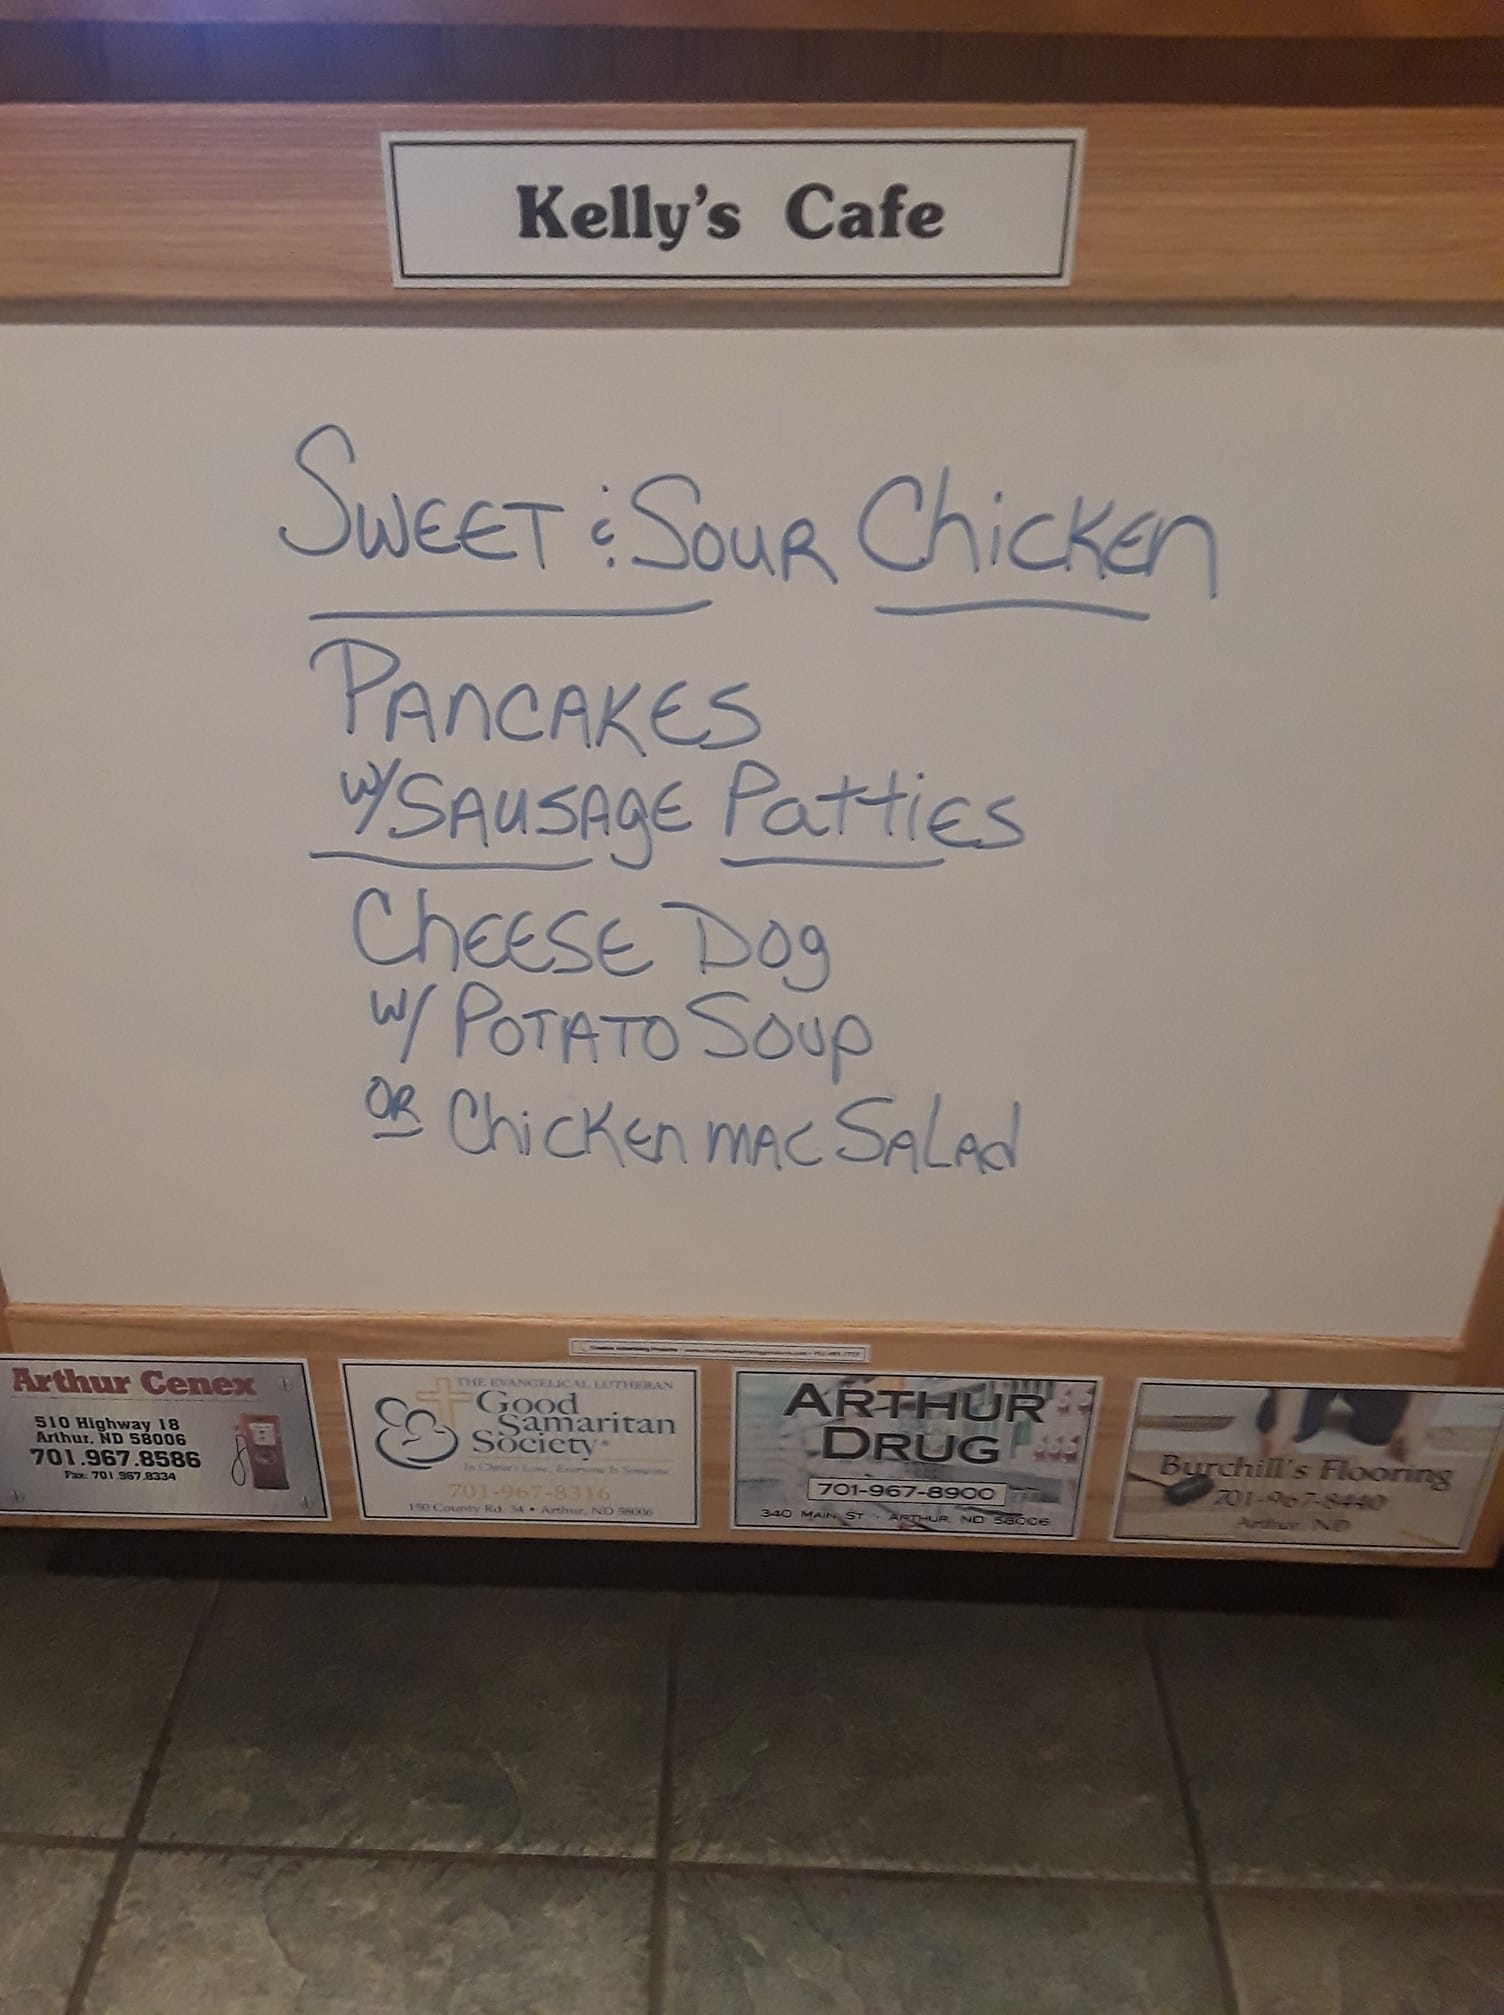 Kelly's Cafe
SWEET & SOUR ChicKEn
PAnCAKES
w/ SAUSAgE PattiES
ChEESE Dog
w/ POTATO Soup
OR ChicKEn mAC SALAd
Arthur Cenex
510 Highway 18
Arthur, ND 58006
701.967.8586
Fax: 701.967.8334
THE EVANGELICAL LUTHERAN
Good
Samaritan
Society
In Christ's Love, Everyone Is Someone
701-967-8316
150 County Rd. 34 • Arthur, ND 58006
ARTHUR
DRUG
701-967-8900
340 MAIN ST · ARTHUR, ND 58006
Burchill's Flooring
701-967-8440
Arthur, ND